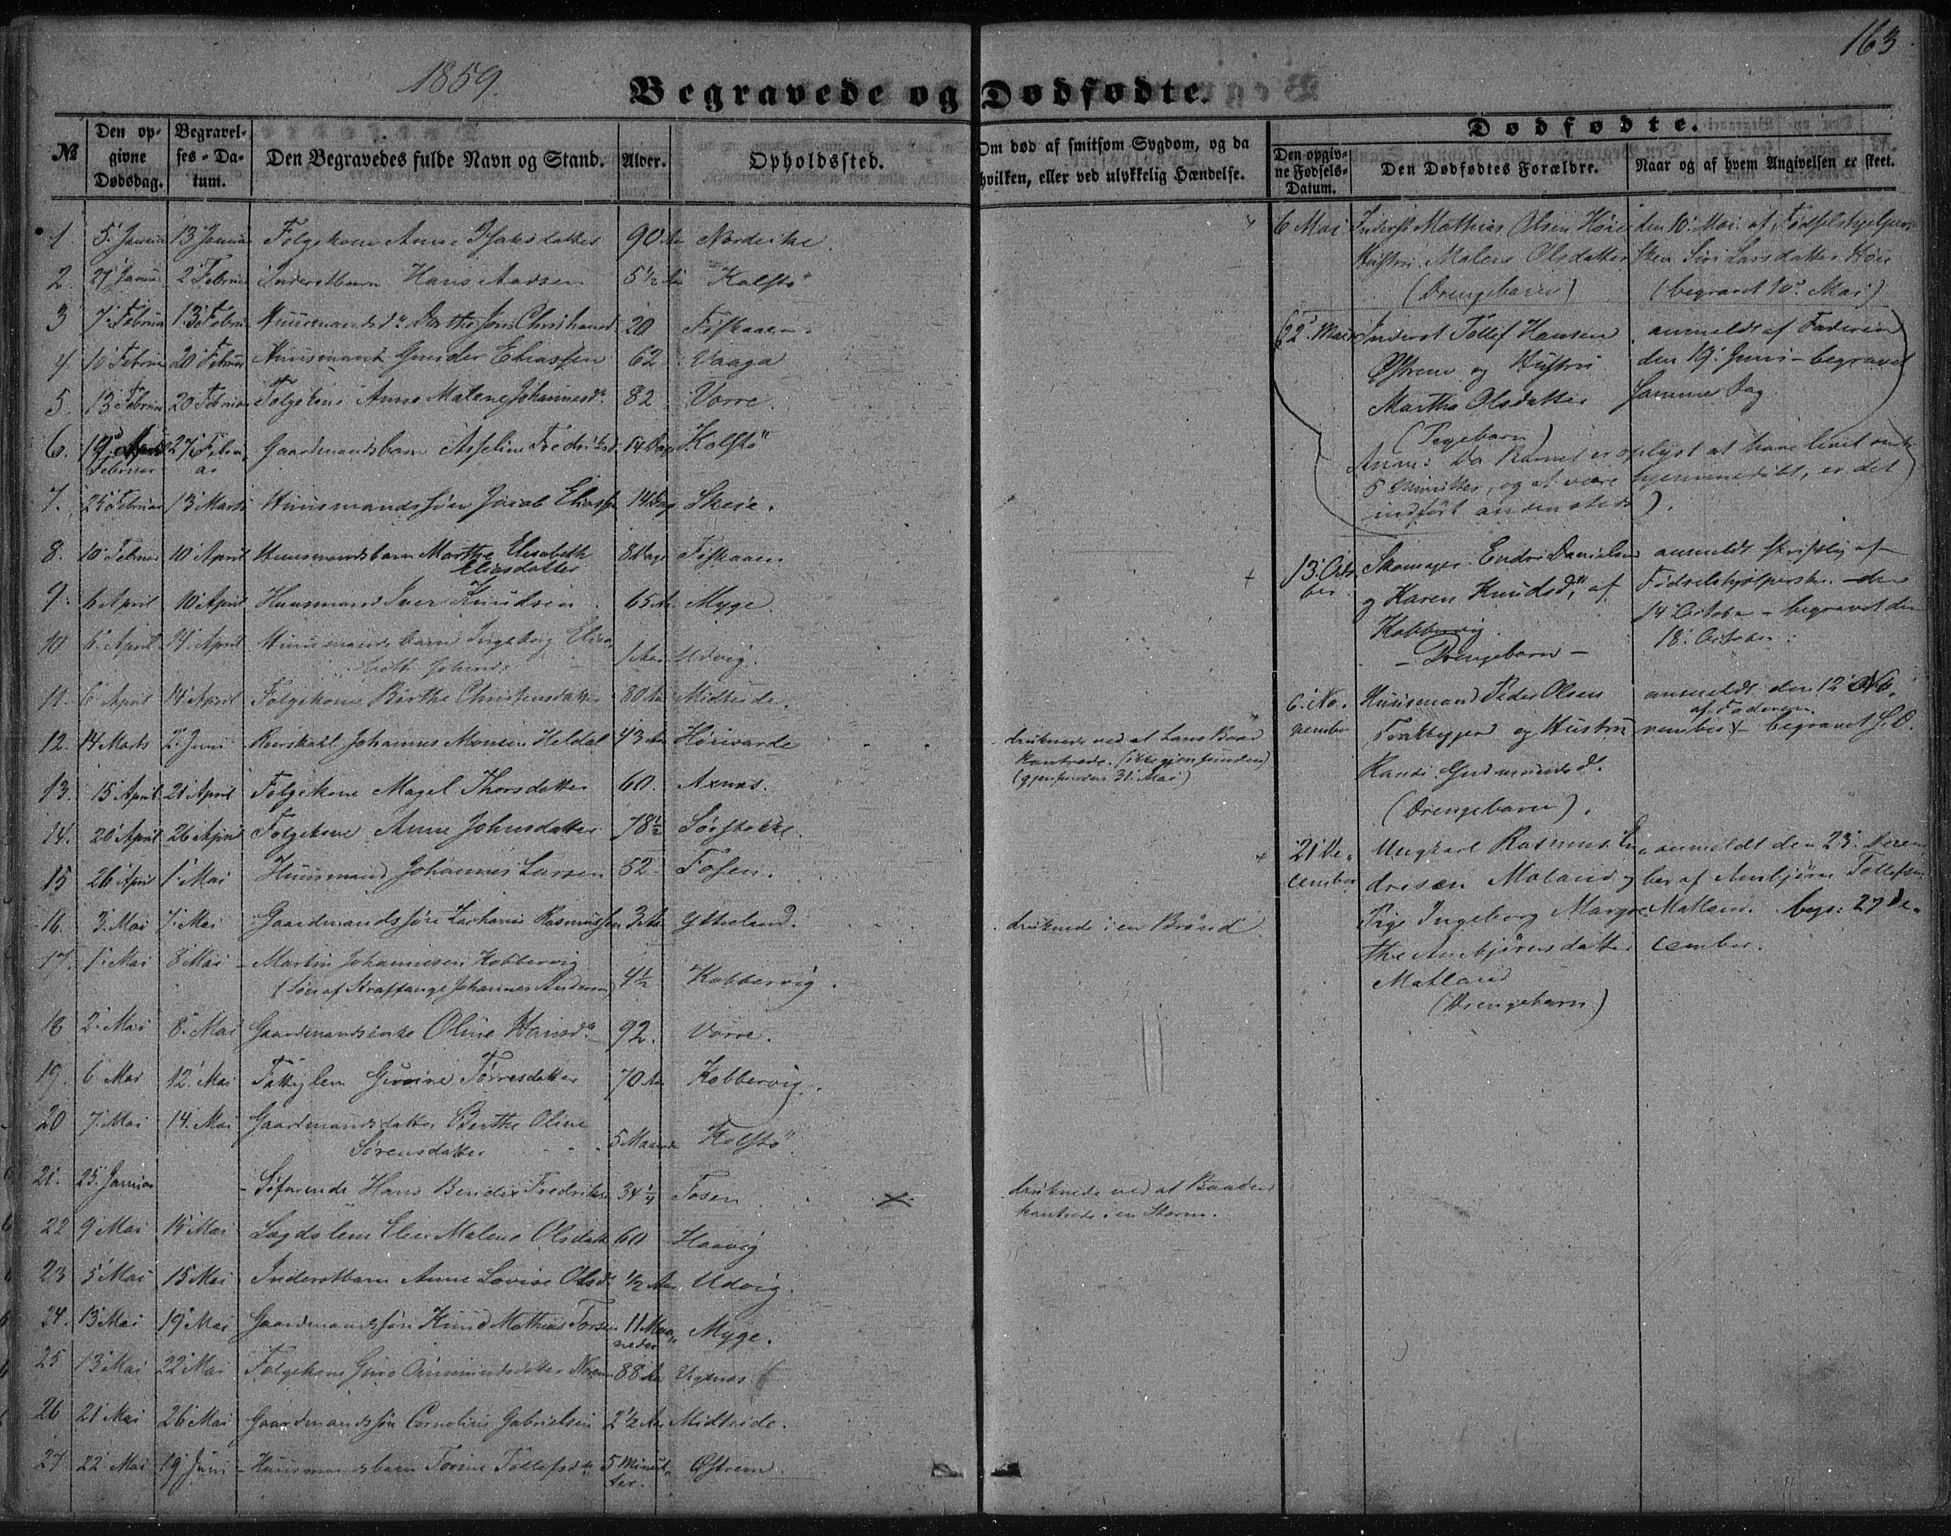 163
1859.
Begravede og Dødfødte.
№
Den opgivne Dødsdag.
Begravelses-Datum.
Den Begravedes fulde Navn og Stand.
Alder.
Opholdssted.
Om død af smitsom Sygdom, og da hvilken, eller ved ulykkelig Hændelse.
Dødfødte.
Den opgivne Fødsels-Datum.
Den Dødfødtes Forældre.
Naar og af hvem Angivelsen er skeet.
1 5. Januar 13 Januar Folgekone Anne 90 Aar
2. 27 Januar 2 Februar Inderstbarn Hans Aadsen 5 1/2 Aar Kolstø
3 7. Februar 13 Februar Huusmandsd. Berthe 20 Fiskaaen.
4 10 Februar 20 Februar Huusmand Gunder Eliassen 62 Vaaga
5. 13 Februar 20 Februar Folgekone Anne Malene Johannesd. 82 Vorre.
6. 19 Februar 27 Februar Gaardmandsbarn Asseline Fredriksd. 14 Dage Kolstø
7. 25 Februar 13 Marts Huusmandssøn Jacob Eliassen 14 Dage Skeie.
8. 10 Februar 10 April Huusmandsbarn Marthe Elisabeth
Eliasdatter 8 Dage Fiskaaen
9. 6 April 10 April Huusmand Iver Knudsen 65 Aar Myge.
10 6. April 14. April Huusmandsbarn Ingeborg Elisabeth Johnsd. 1 Aar Udvig.
11. 6 April 14 April Folgekone Birthe Christensdatter 80 Aar Midteide.
12. 14 Marts 2. Juni Johannes Monsen Heldal 43 Aar Høievarde druknede ved at hans Baad
kantrede. (ikke gjenfunden)
(gjenfunden 31. Mai)
13. 15 April 21 April Folgekone Magel Thorsdatter 60. Axnes.
14. 20 April 26 April Folgekone Anne Johnsdatter 78 1/2 Sørstokke.
15 26 April 1 Mai Huusmand Johannes Larsen 52. Fosen.
16. 3. Mai 7. Mai Gaardmandssøn Zacharias Rasmussen 3 Aar Ytreland. druknede i en Brønd
17. 1. Mai 8 Mai Martin Johannesen Kobbervig
(Søn af Straffange Johannes Andersen) 4 1/2 Kobbervig.
18 2. Mai 8. Mai Gaardmandsenke Oline Hansd. 92. Vorre.
19. 6 Mai 12. Mai Fattiglem Tørresdatter 70 Aar Kobbervig.
20 7. Mai 14. Mai Gaardmandsdatter Berthe Oline
Sørensdatter 5 Maaneder Kolstø
21. 25. Januar Søfarende Hans Bendix Fredriksen 34 1/4 Fosen druknede ved at Baaden
kantrede i en Storm.
22 9 Mai 15 Mai Lægdslem Elen Malene Olsdatter 60 Haavig
23 5 Mai 15 Mai Inderstbarn Anne Lovise Olsd. 1/2 Aar Udvig.
24. 13 Mai 19 Mai Gaardmandssøn Knud Mathias 11 Maaneder Myge.
25 13 Mai 22 Mai Folgekone 88 Aar Vignes
26 21 Mai 26 Mai Gaardmandssøn Cornelius Gabrielsen 2 1/2 Aar Midteide.
27 22 Mai 19 Juni Huusmandsbarn Torine Tollefsd. 5 Minutter. Østrem.
6 Mai Inderst Mathias Olsen Høie
Hustru Malene Olsdatter
(Drengebarn)
den 10. Mai af Fødselshjelpersken Siri Larsdatter Høie
(begravet 10. Mai)
22. Mai Inderst Tollef Hansen
Østrem og Hustru
Martha Olsdatter
(Pigebarn)
anmeldt af Faderen
den 19. Juni – begravet
Samme Dag
Anm: Da Barnet er oplyst at have levet omtr.
5 Minutter, og at være hjemmedøbt, er det
indført andensteds).
13. October Skomager Endre Danielsen
og Karen Knudsd. af
Kobbervig.
– Drengebarn –
anmeldt skriftlig af
Fødselshjelpersken den
14 October – begravet den
18. October.
6. November Huusmand Peder Olsen
og Hustru
Randi Gudmundsd.
(Drengebarn).
anmeldt den 12 November af Faderen
begravet S. D.
21 December Ungkarl Rasmus Endresen Matland og
Pige Ingeborg Margrethe Anbjørnsdatter
Matland
(Drengebarn)
anmeldt den 23. December af Anbjørn Tollefsen
Matland. begr: 27 December.